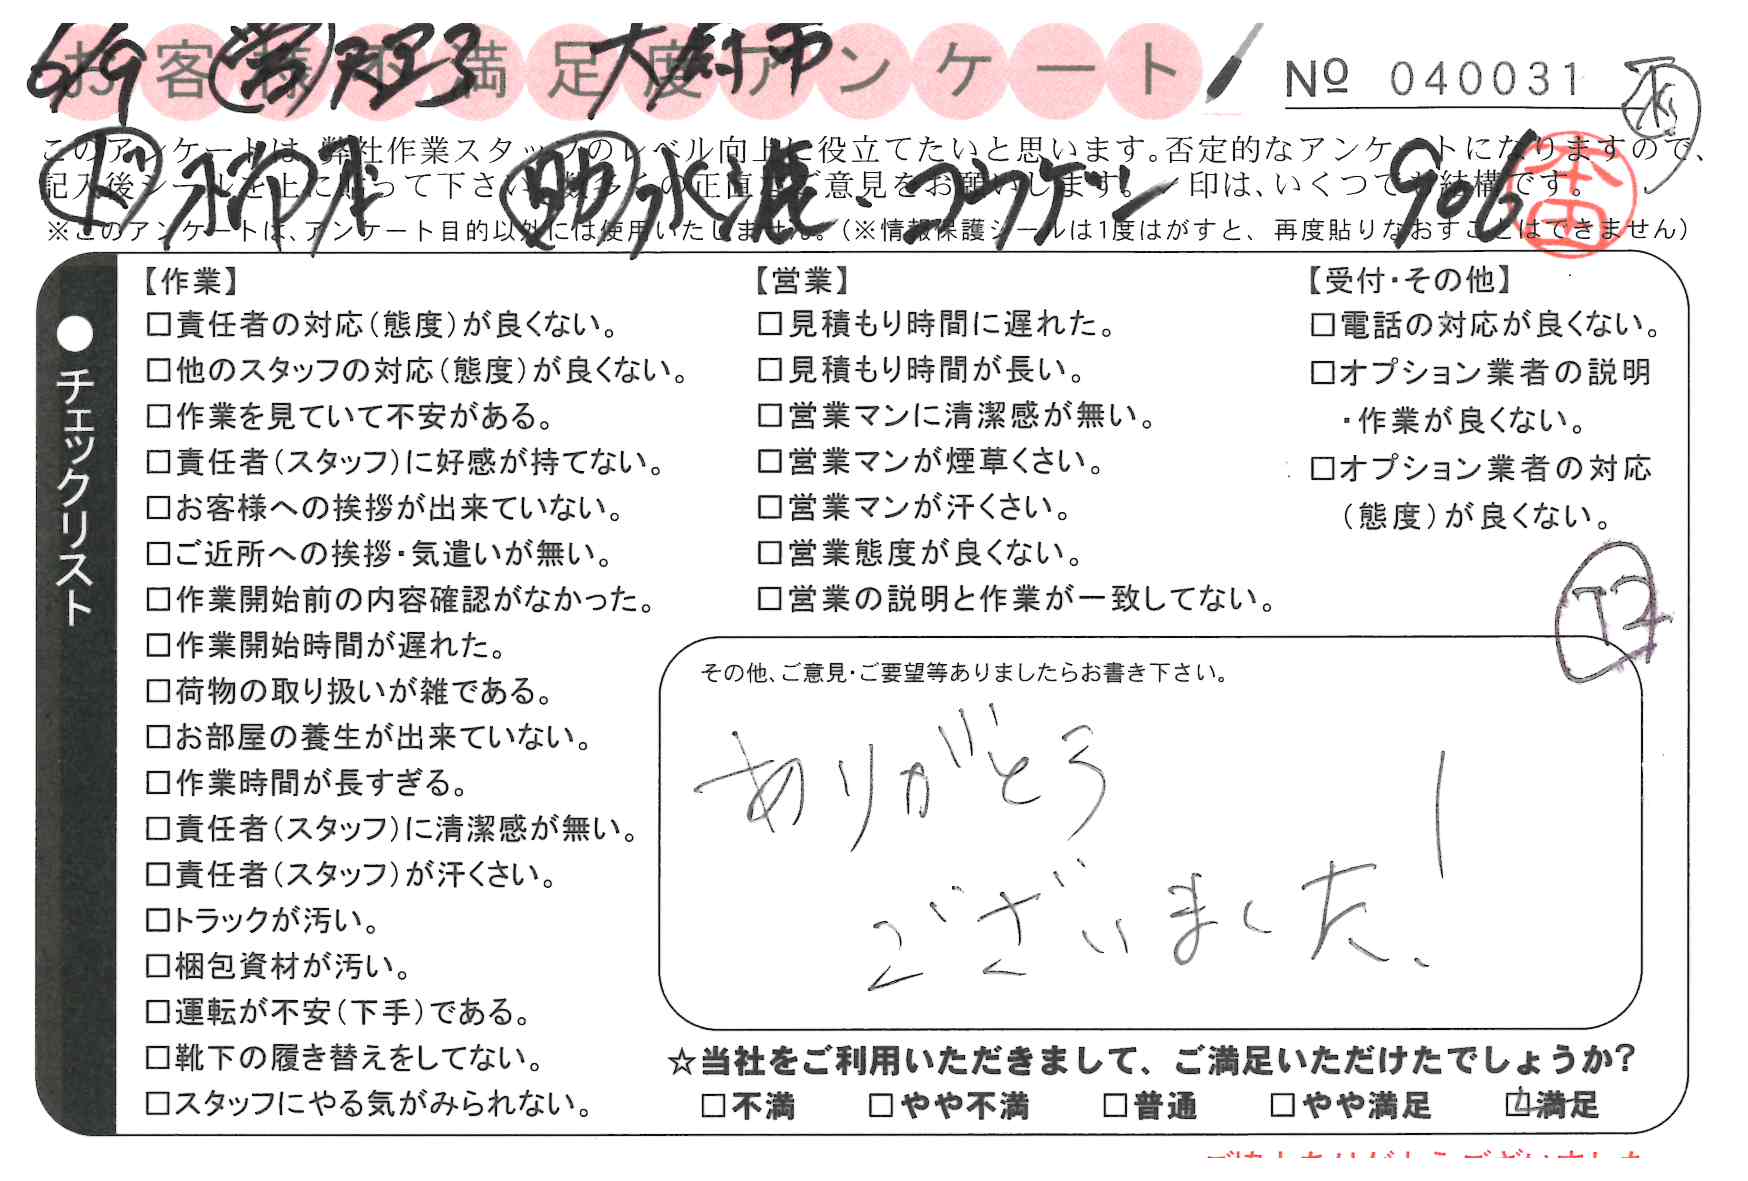 お客様不満足度アンケート
6/9
大府市
No 040031
このアンケートは、弊社作業スタッフのレベル向上に役立てたいと思います。否定的なアンケートになりますので、
記入後シールを上に貼って下さい。数多くの正直なご意見をお願いします。✓印は、いくつでも結構です。
906
※このアンケートは、アンケート目的以外には使用いたしません。(※情報保護シールは1度はがすと、再度貼りなおすことはできません)
●チェックリスト
【作業】
□責任者の対応(態度)が良くない。
□他のスタッフの対応(態度)が良くない。
□作業を見ていて不安がある。
□責任者(スタッフ)に好感が持てない。
□お客様への挨拶が出来ていない。
□ご近所への挨拶・気遣いが無い。
□作業開始前の内容確認がなかった。
□作業開始時間が遅れた。
□荷物の取り扱いが雑である。
□お部屋の養生が出来ていない。
□作業時間が長すぎる。
□責任者(スタッフ)に清潔感が無い。
□責任者(スタッフ)が汗くさい。
□トラックが汚い。
□梱包資材が汚い。
□運転が不安(下手)である。
□靴下の履き替えをしてない。
□スタッフにやる気がみられない。
【営業】
□見積もり時間に遅れた。
□見積もり時間が長い。
□営業マンに清潔感が無い。
□営業マンが煙草くさい。
□営業マンが汗くさい。
□営業態度が良くない。
□営業の説明と作業が一致してない。
【受付・その他】
□電話の対応が良くない。
□オプション業者の説明
・作業が良くない。
□オプション業者の対応
(態度)が良くない。
その他、ご意見・ご要望等ありましたらお書き下さい。
ありがとう
ございました!
☆当社をご利用いただきまして、ご満足いただけたでしょうか?
□不満 □やや不満 □普通 □やや満足 ☑満足
ご協力ありがとうございました